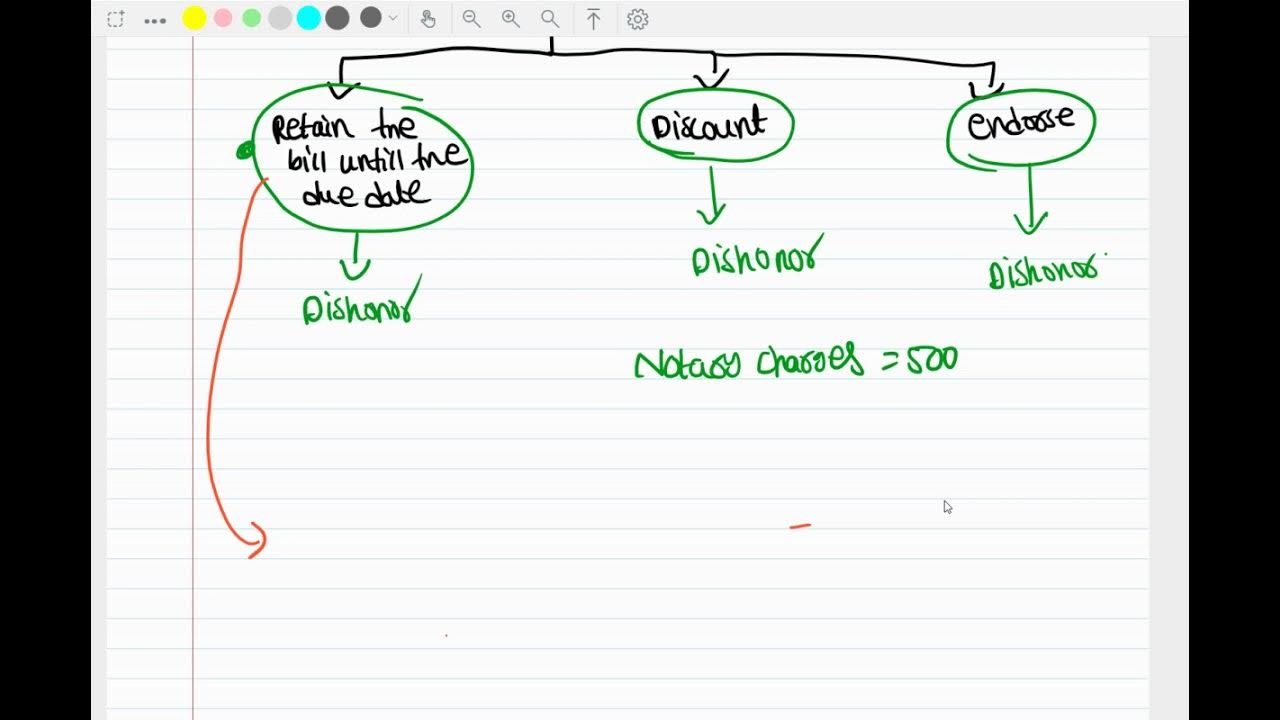 Retain the
bill untill the
due date
Discount
endorse
Dishonor
Dishonor
Dishonor
Notary charges = 500